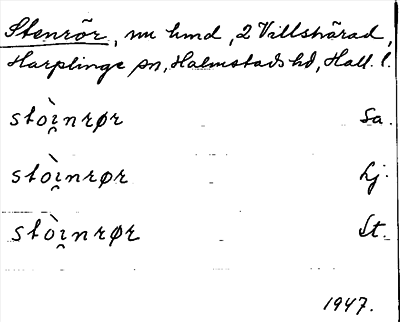 Stenrör, nu hmd, 2 Villshärad,
Harplinge sn, Halmstads hd, Hall. l.
stòi̯nrør Sa.
stòi̯nrør Lj.
stòi̯nrør St.
1947.